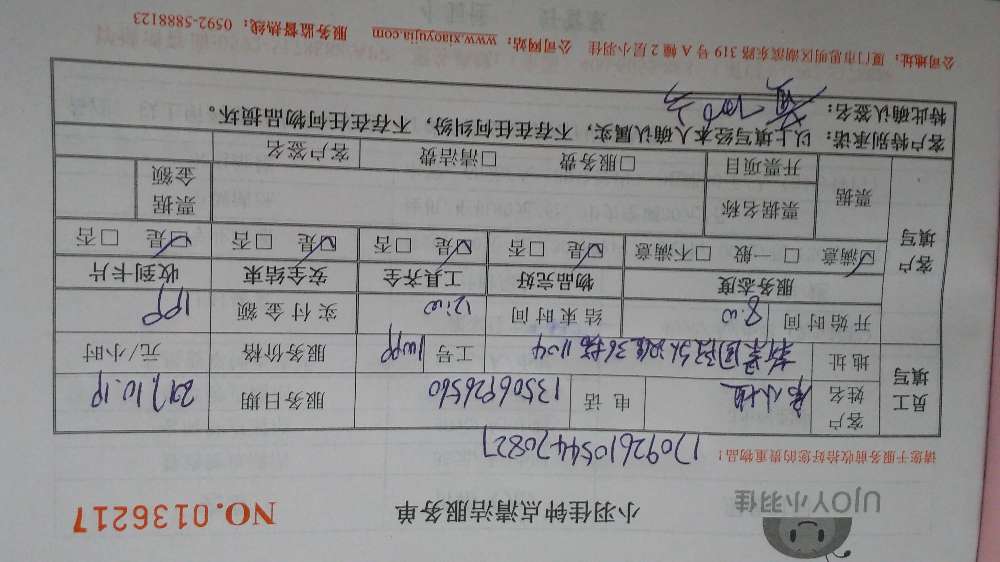 UJOY小羽佳
小羽佳钟点清洁服务单
NO.0136217
请您于服务前收拾好您的贵重物品!
1709261054470827
员工填写
客户姓名
电话 13506926560
服务日期 2017.10.19
地址
工号
服务价格
元/小时
开始时间 8:00
结束时间 12:00
实付金额
客户填写
服务态度
物品完好
工具齐全
安全结束
收到卡片
☑满意 □一般 □不满意
☑是 □否
☑是 □否
☑是 □否
☑是 □否
票据
票据名称
票据金额
开票项目
□服务费 □清洁费
客户签名
客户特别承诺:以上填写经本人确认属实,不存在任何纠纷,不存在任何物品损坏。
特此确认签名:
公司地址:厦门市思明区湖滨东路 319 号 A 幢 2 层小羽佳 公司网站:www.xiaoyujia.com 服务监督热线:0592-5888123